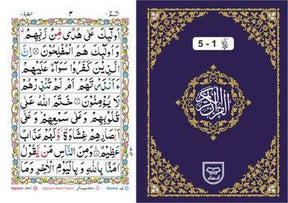 أُولَٰئِكَ عَلَىٰ هُدًى مِّن رَّبِّهِمْ
وَأُولَٰئِكَ هُمُ الْمُفْلِحُونَ
إِنَّ الَّذِينَ كَفَرُوا سَوَاءٌ عَلَيْهِمْ
أَأَنذَرْتَهُمْ أَمْ لَمْ تُنذِرْهُمْ
لَا يُؤْمِنُونَ خَتَمَ اللَّهُ عَلَىٰ
قُلُوبِهِمْ وَعَلَىٰ سَمْعِهِمْ وَعَلَىٰ
أَبْصَارِهِمْ غِشَاوَةٌ وَلَهُمْ عَذَابٌ
عَظِيمٌ وَمِنَ النَّاسِ مَن يَقُولُ
آمَنَّا بِاللَّهِ وَبِالْيَوْمِ الْآخِرِ وَمَا
5 - 1
القرآن الكريم